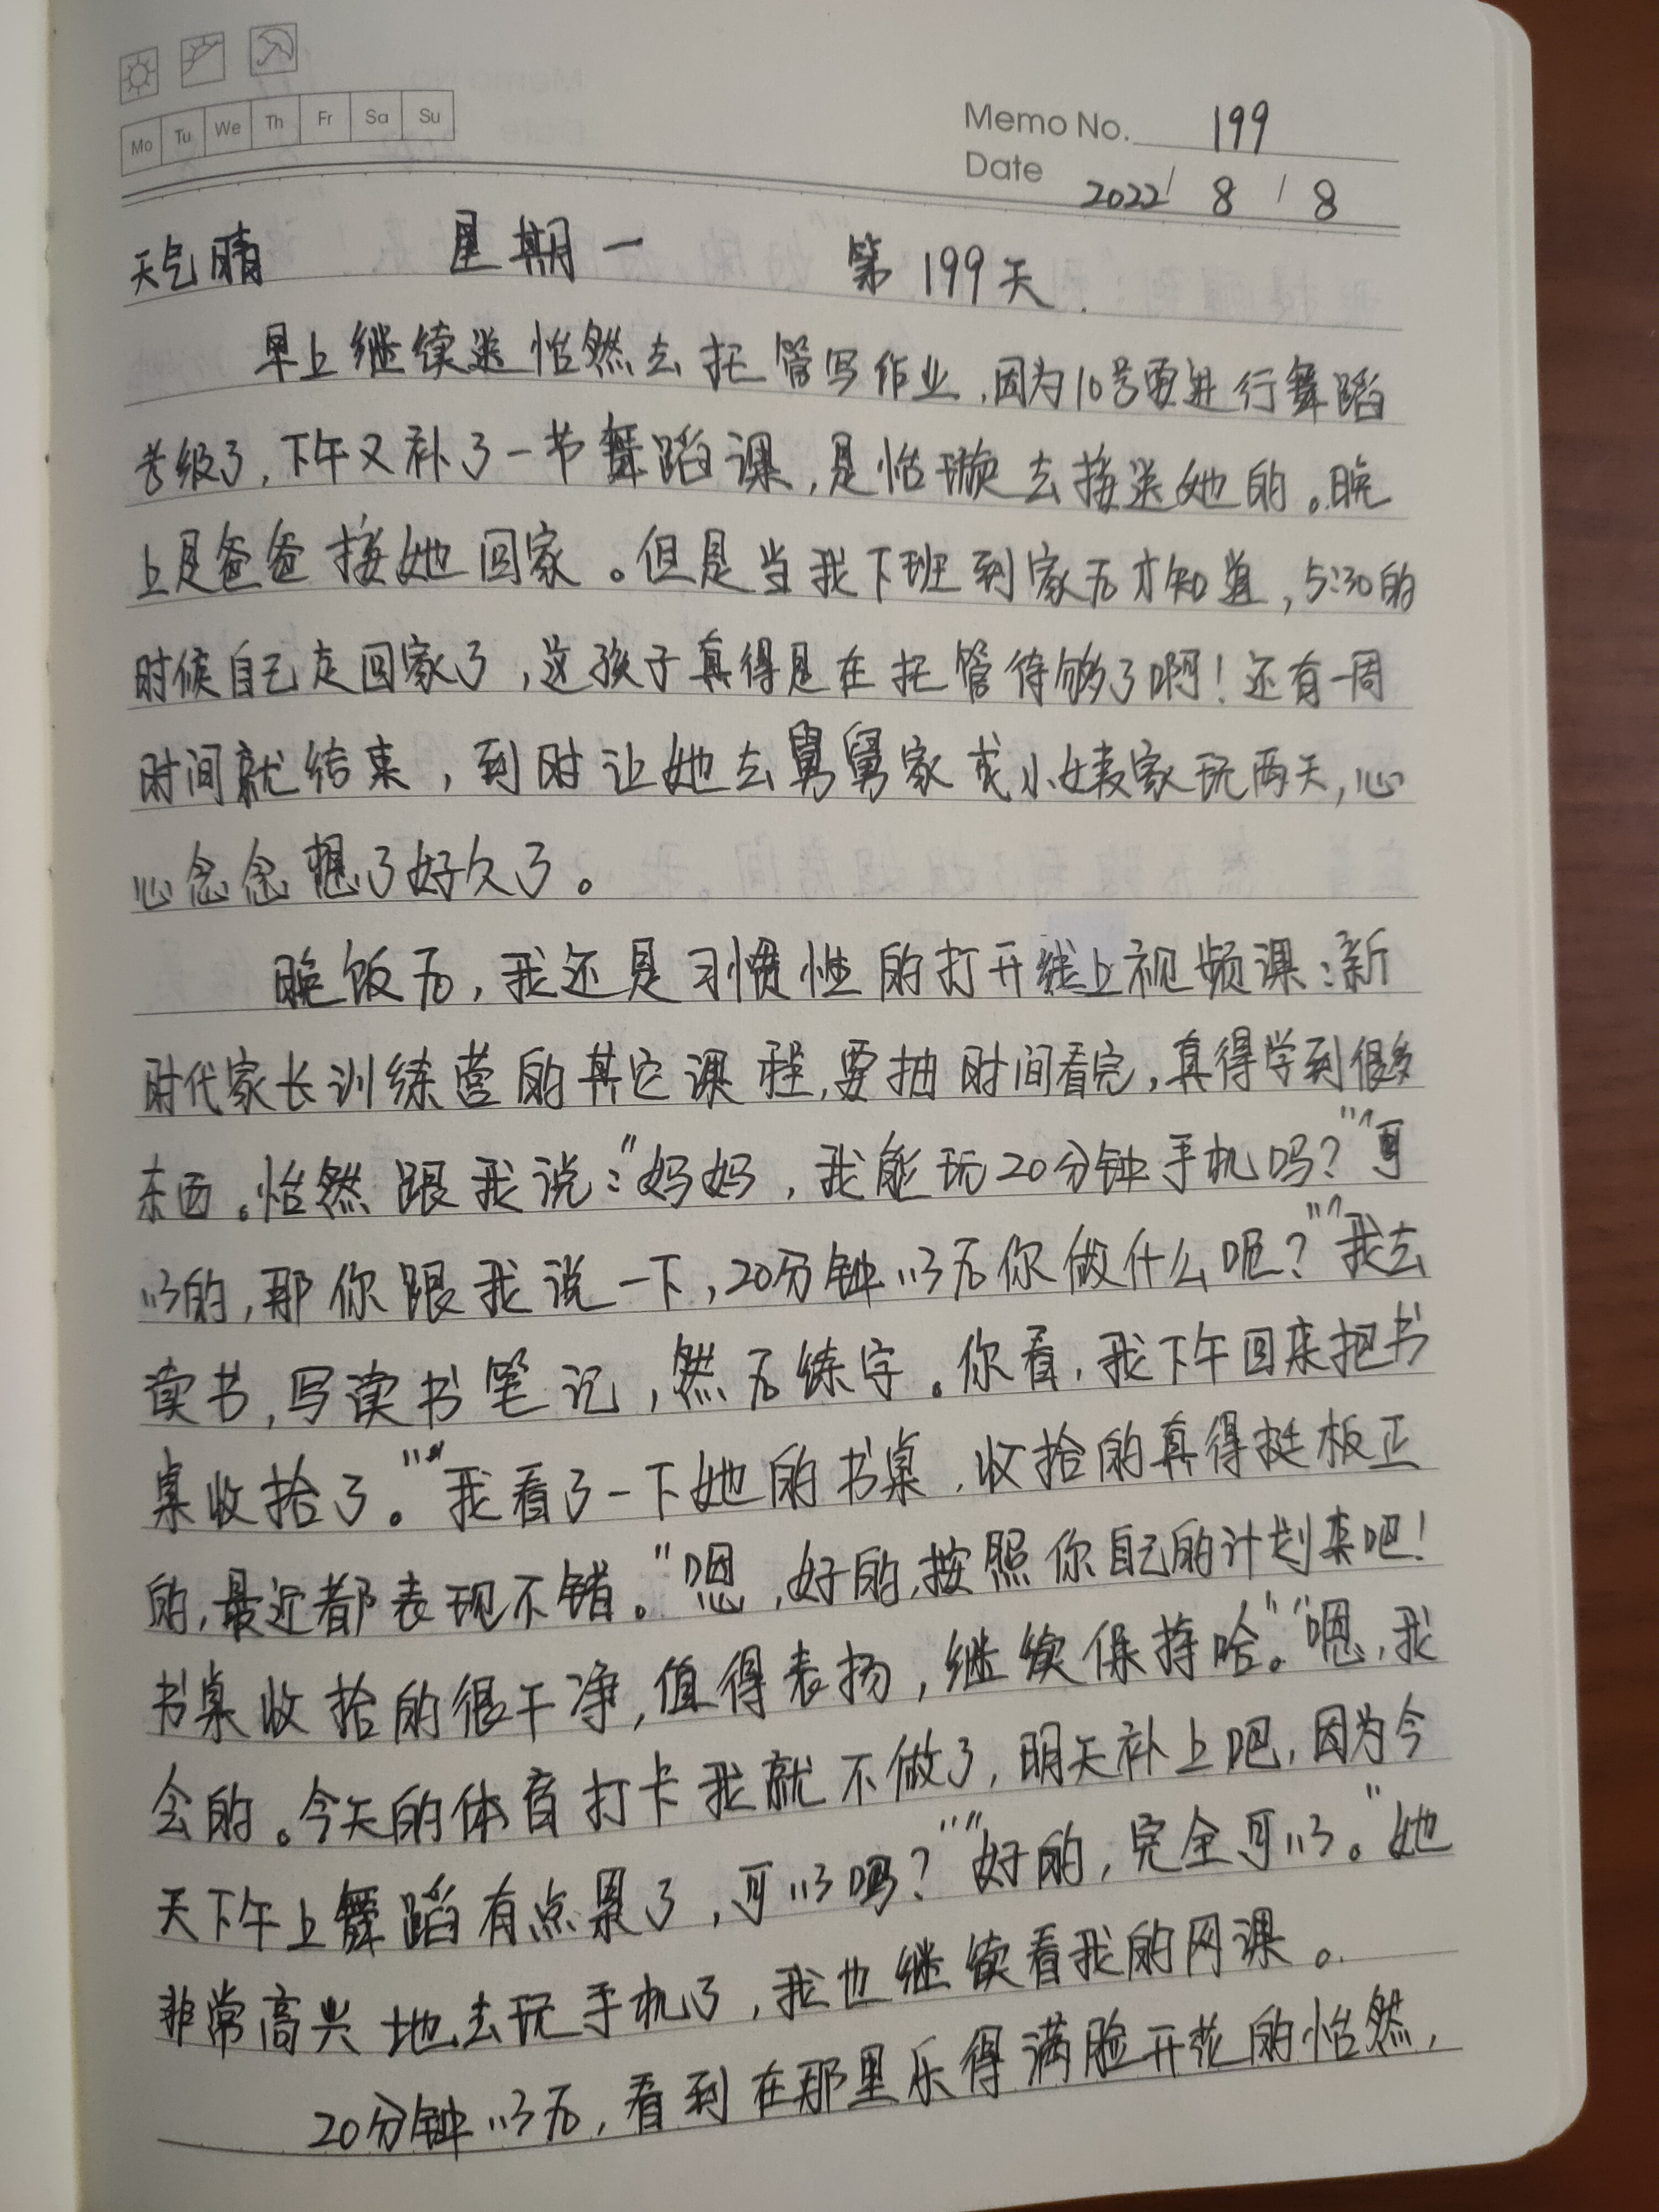 Mo Tu We Th Fr Sa Su
Memo No. 199
Date 2022 / 8 / 8
天气晴 星期一 第199天
早上继续送怡然去托管写作业,因为10号要进行舞蹈
考级了,下午又补了一节舞蹈课,是怡璇去接送她的。晚
上是爸爸接她回家。但是当我下班到家后才知道,5:30的
时候自己走回家了,这孩子真得是在托管待够了啊!还有一周
时间就结束,到时让她去舅舅家或小姨家玩两天,心
心念念想了好久了。
晚饭后,我还是习惯性的打开线上视频课:新
时代家长训练营的其它课程,要抽时间看完,真得学到很多
东西。怡然跟我说:"妈妈,我能玩20分钟手机吗?""可
以的,那你跟我说一下,20分钟以后你做什么呢?""我去
读书,写读书笔记,然后练字。你看,我下午回来把书
桌收拾了。""我看了一下她的书桌,收拾的真得挺板正
的,最近都表现不错。"嗯,好的,按照你自己的计划来吧!
书桌收拾的很干净,值得表扬,继续保持哈。""嗯,我
会的。今天的体育打卡我就不做了,明天补上吧,因为今
天下午上舞蹈有点累了,可以吗?""好的,完全可以。"她
非常高兴地去玩手机了,我也继续看我的网课。
20分钟以后,看到在那里乐得满脸开花的怡然,